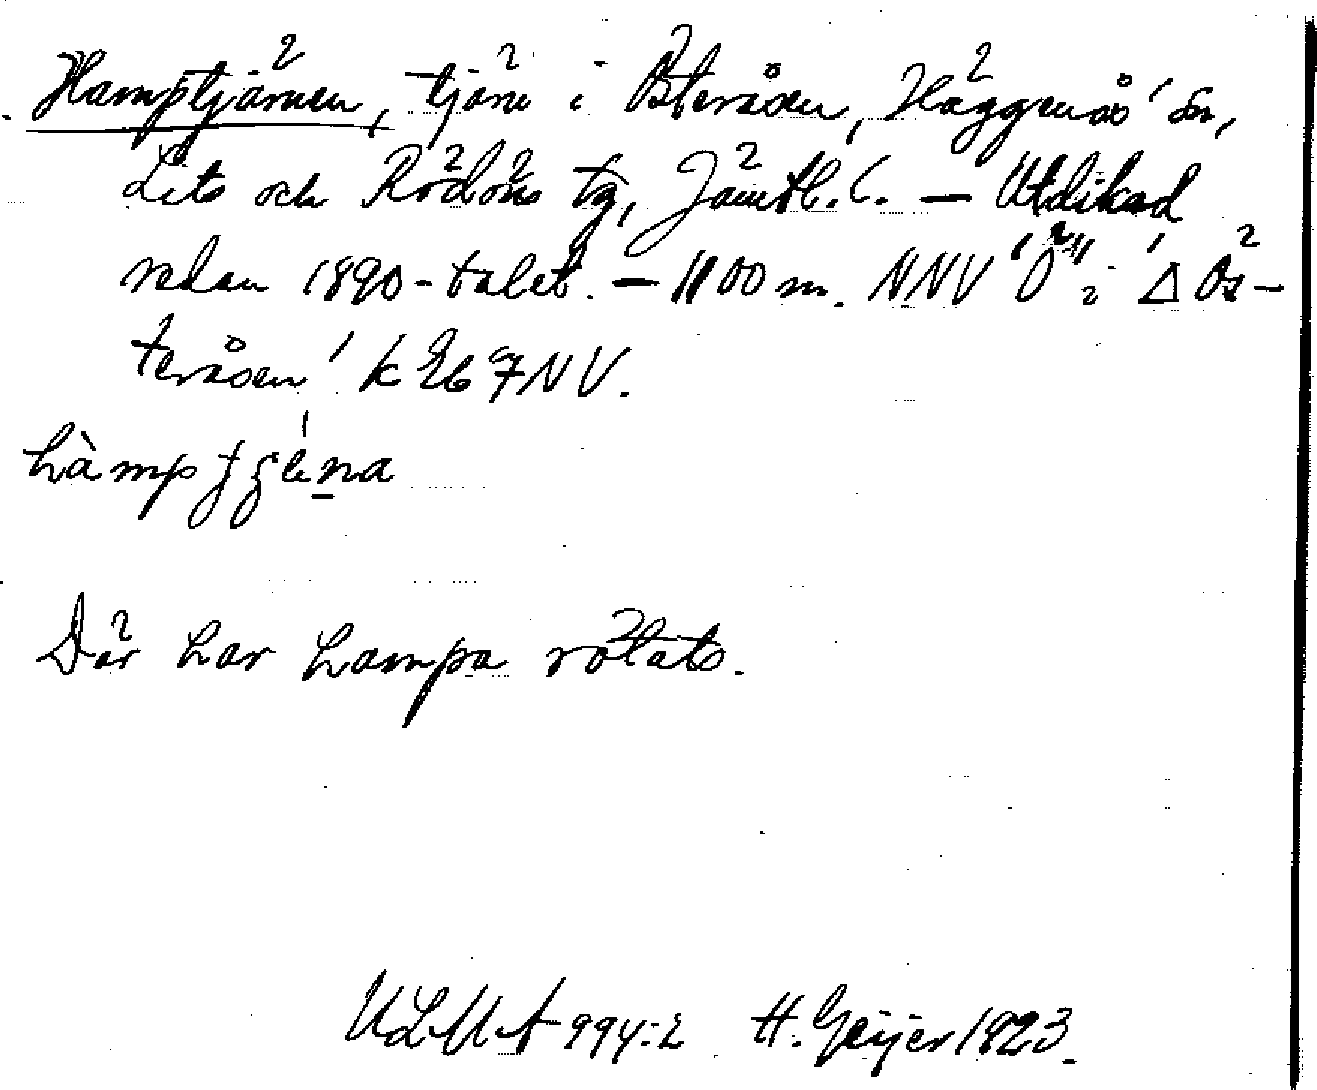 Hamptjärnen, tjärn i Österåsen, Häggenås' sn,
Lits och Rödöns tg, Jämtl. l. — Utdikad
sedan 1890-talet. — 1100 m. NNV "Ö" i 'Δ Ös-
teråsen' k 267NV.
hàmp
Där har hampa rötats.
ULMA 994:2 H. Geijer 1923.